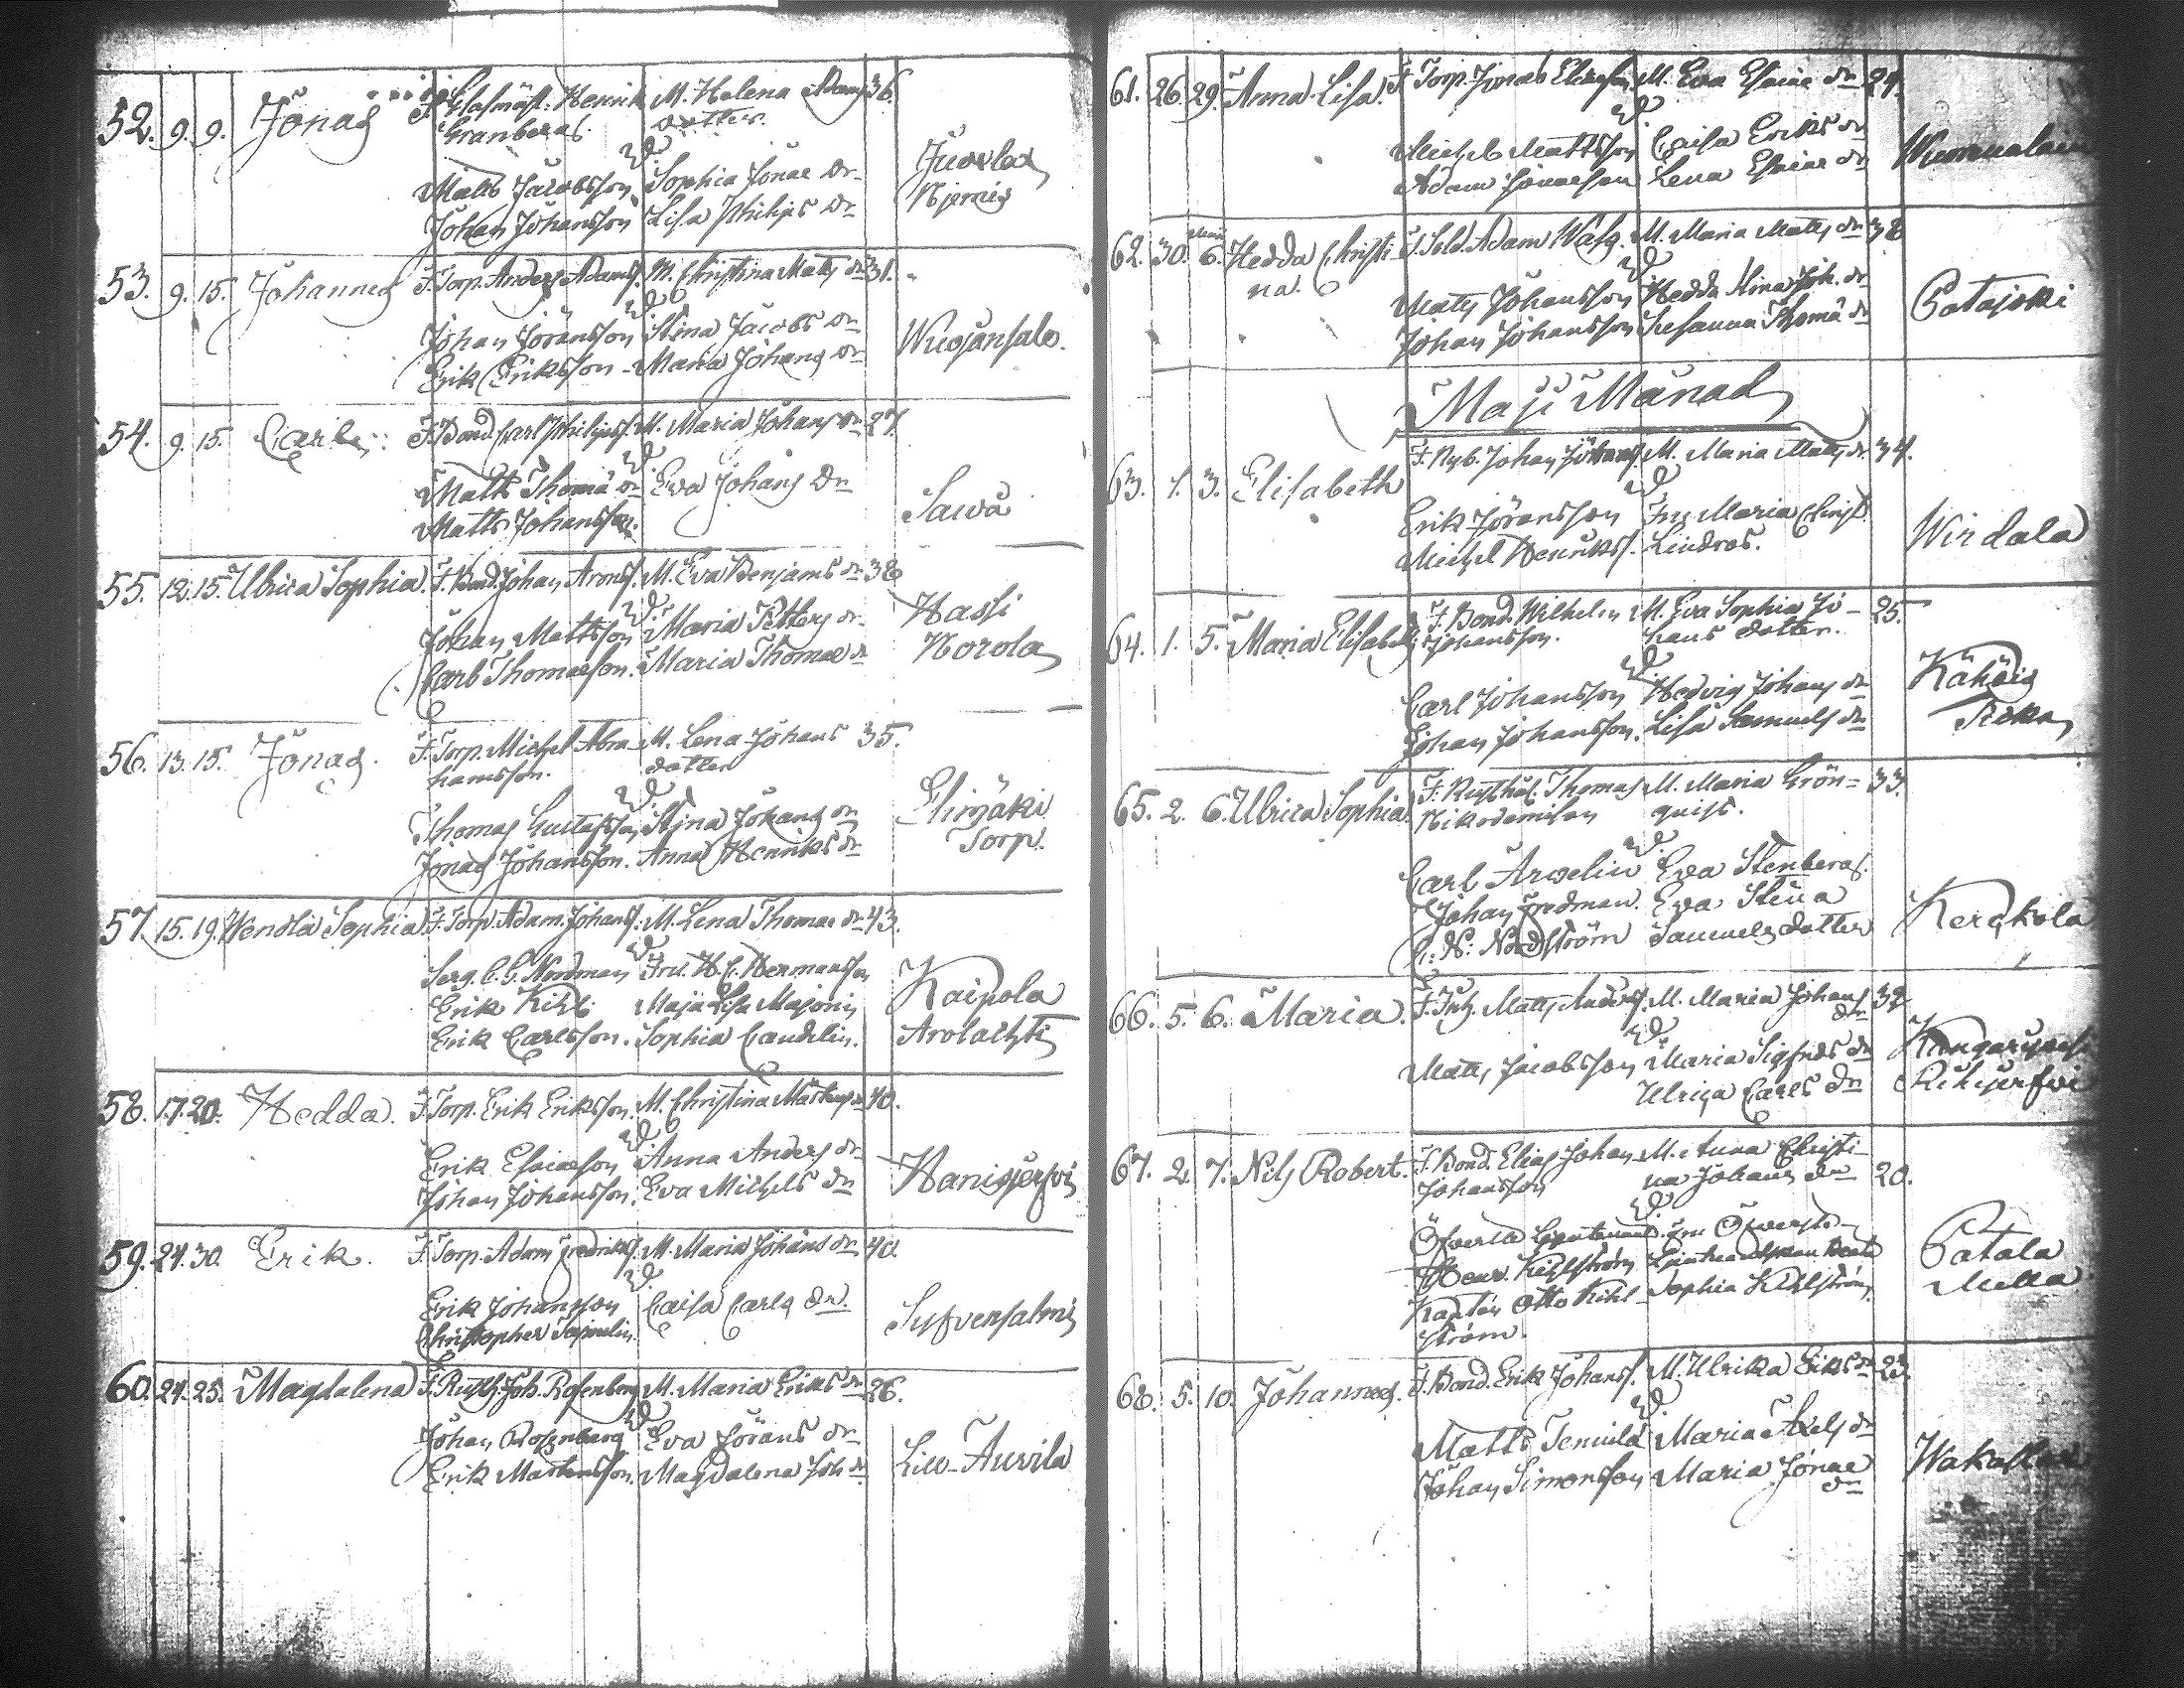 52. 9. 9. Jonas F. Glasmäst. Henrik M. Helena Adams 36.
Granberg. dotter.
Matts Jacobsson Sophia Jonae dr Juvola
Johan Johansson Lisa Philips dr Njemis
53. 9. 15. Johannes F. Torp. Anders Adams. M. Christina Matts dr 31.
Johan Jöransson Stina Jacobs dr
Erik Eriksson Maria Johans dr
54. 9. 15. Carl F. Bond. Carl Philipss. M. Maria Johans dr 27.
Matts Thomæ Eva Johans dr Sawo
Matts Johansson
55. 12. 15. Ulrica Sophia. F. Bond. Johan M. Eva Benjams dr 38
Johan Mattsson Maria Petters dr Hasli
Carl Thomasson. Maria Thomae dr Norola
56. 13. 15. Jonas. F. Torp. Michel Abra- M. Lena Johans 35.
hamsson. dotter
Thomas Gustafsson Stina Johans dr Elimäki
Jonas Johansson. Anna Henriks dr Torp.
57. 15. 19. Wendla Sophia F. Torp. Adam Johanss. M. Lena Thomae dr 43.
Serg. C. G. Nordman Fru. H. C. Hermansson
Erik Kihl Maja Lisa Majorin Kaipola
Erik Carlsson. Sophia Caudelin. Arolachti
58. 17. 20. Hedda. F. Torp. Erik Eriksson. M. Christina dr 40.
Erik Esaiaesson Anna Anders dr
Johan Johansson. Eva Michels dr Hanisjerfvi
59. 24. 30. Erik. F. Torp. Adam Fredrikss. M. Maria Johans dr 40.
Erik Johansson Caisa Carls dr.
Christopher Syfvensalmi
60. 24. 25. Magdalena F. Rusth. Joh. Rosenberg M. Maria Eriks dr 26.
Johan Rosenberg Eva Jörans dr
Erik Mårtensson. Magdalena Joh dr Liuu-Auvila
61. 26. 29. Anna Lisa. F. Torp. Jonas M. Eva Esaiae dr 24.
Michel Mattsson Caisa Eriks dr
Adam Jonaesson Lena Esaiae dr
62. 30. Maii 6. Hedda Christi- F. Sold. Adam M. Maria Matts dr 38
na.
Matts Johansson Hedda Stina Joh. dr Patajoki
Johan Johansson Susanna Thomæ dr
Maji Månad
63. 1. 3. Elisabeth F. Nyb. Johan M. Maria Matts dr 34.
Erik Jöransson Fru Maria Christ.
Michel Henrikss. Lindroos. Wirdala
64. 1. 5. Maria Elisabeth F. Bond. Wilhelm M. Eva Sophia Jo- 25.
Johansson. hans dotter.
Carl Johansson Hedvig Johans dr Kähöis
Johan Johansson. Lisa Samuels dr
65. 2. 6. Ulrica Sophia F. Rusthål. Thomas M. Maria Grön- 33.
Nikodemisson quist.
Carl Arvelin Eva Stenberg.
Johan Fredman. Eva Stina
C. N. Nordström Samuelsdotter Kerckola
66. 5. 6. Maria. F. Matts Anderss. M. Maria Johans dr 32
Matts Jacobsson Maria Sigfreds dr
Ulrica Carls dr
67. 2. 7. Nils Robert. F. Bond. Elias Johan M. Anna Christi-
Johansson na Johans dr 20.
Öfverste Lieutenant. Fru Öfverste-
Kihlström Lieutenantskan Beata Patala
Kapten Otto Kihl- Sophia Kihlström. Mella
ström.
68. 5. 10. Johannes. F. Bond. Erik Johanss. M. Ulrika Eriks dr 23.
Matts Maria Axels dr
Johan Simonsson Maria Jonae dr